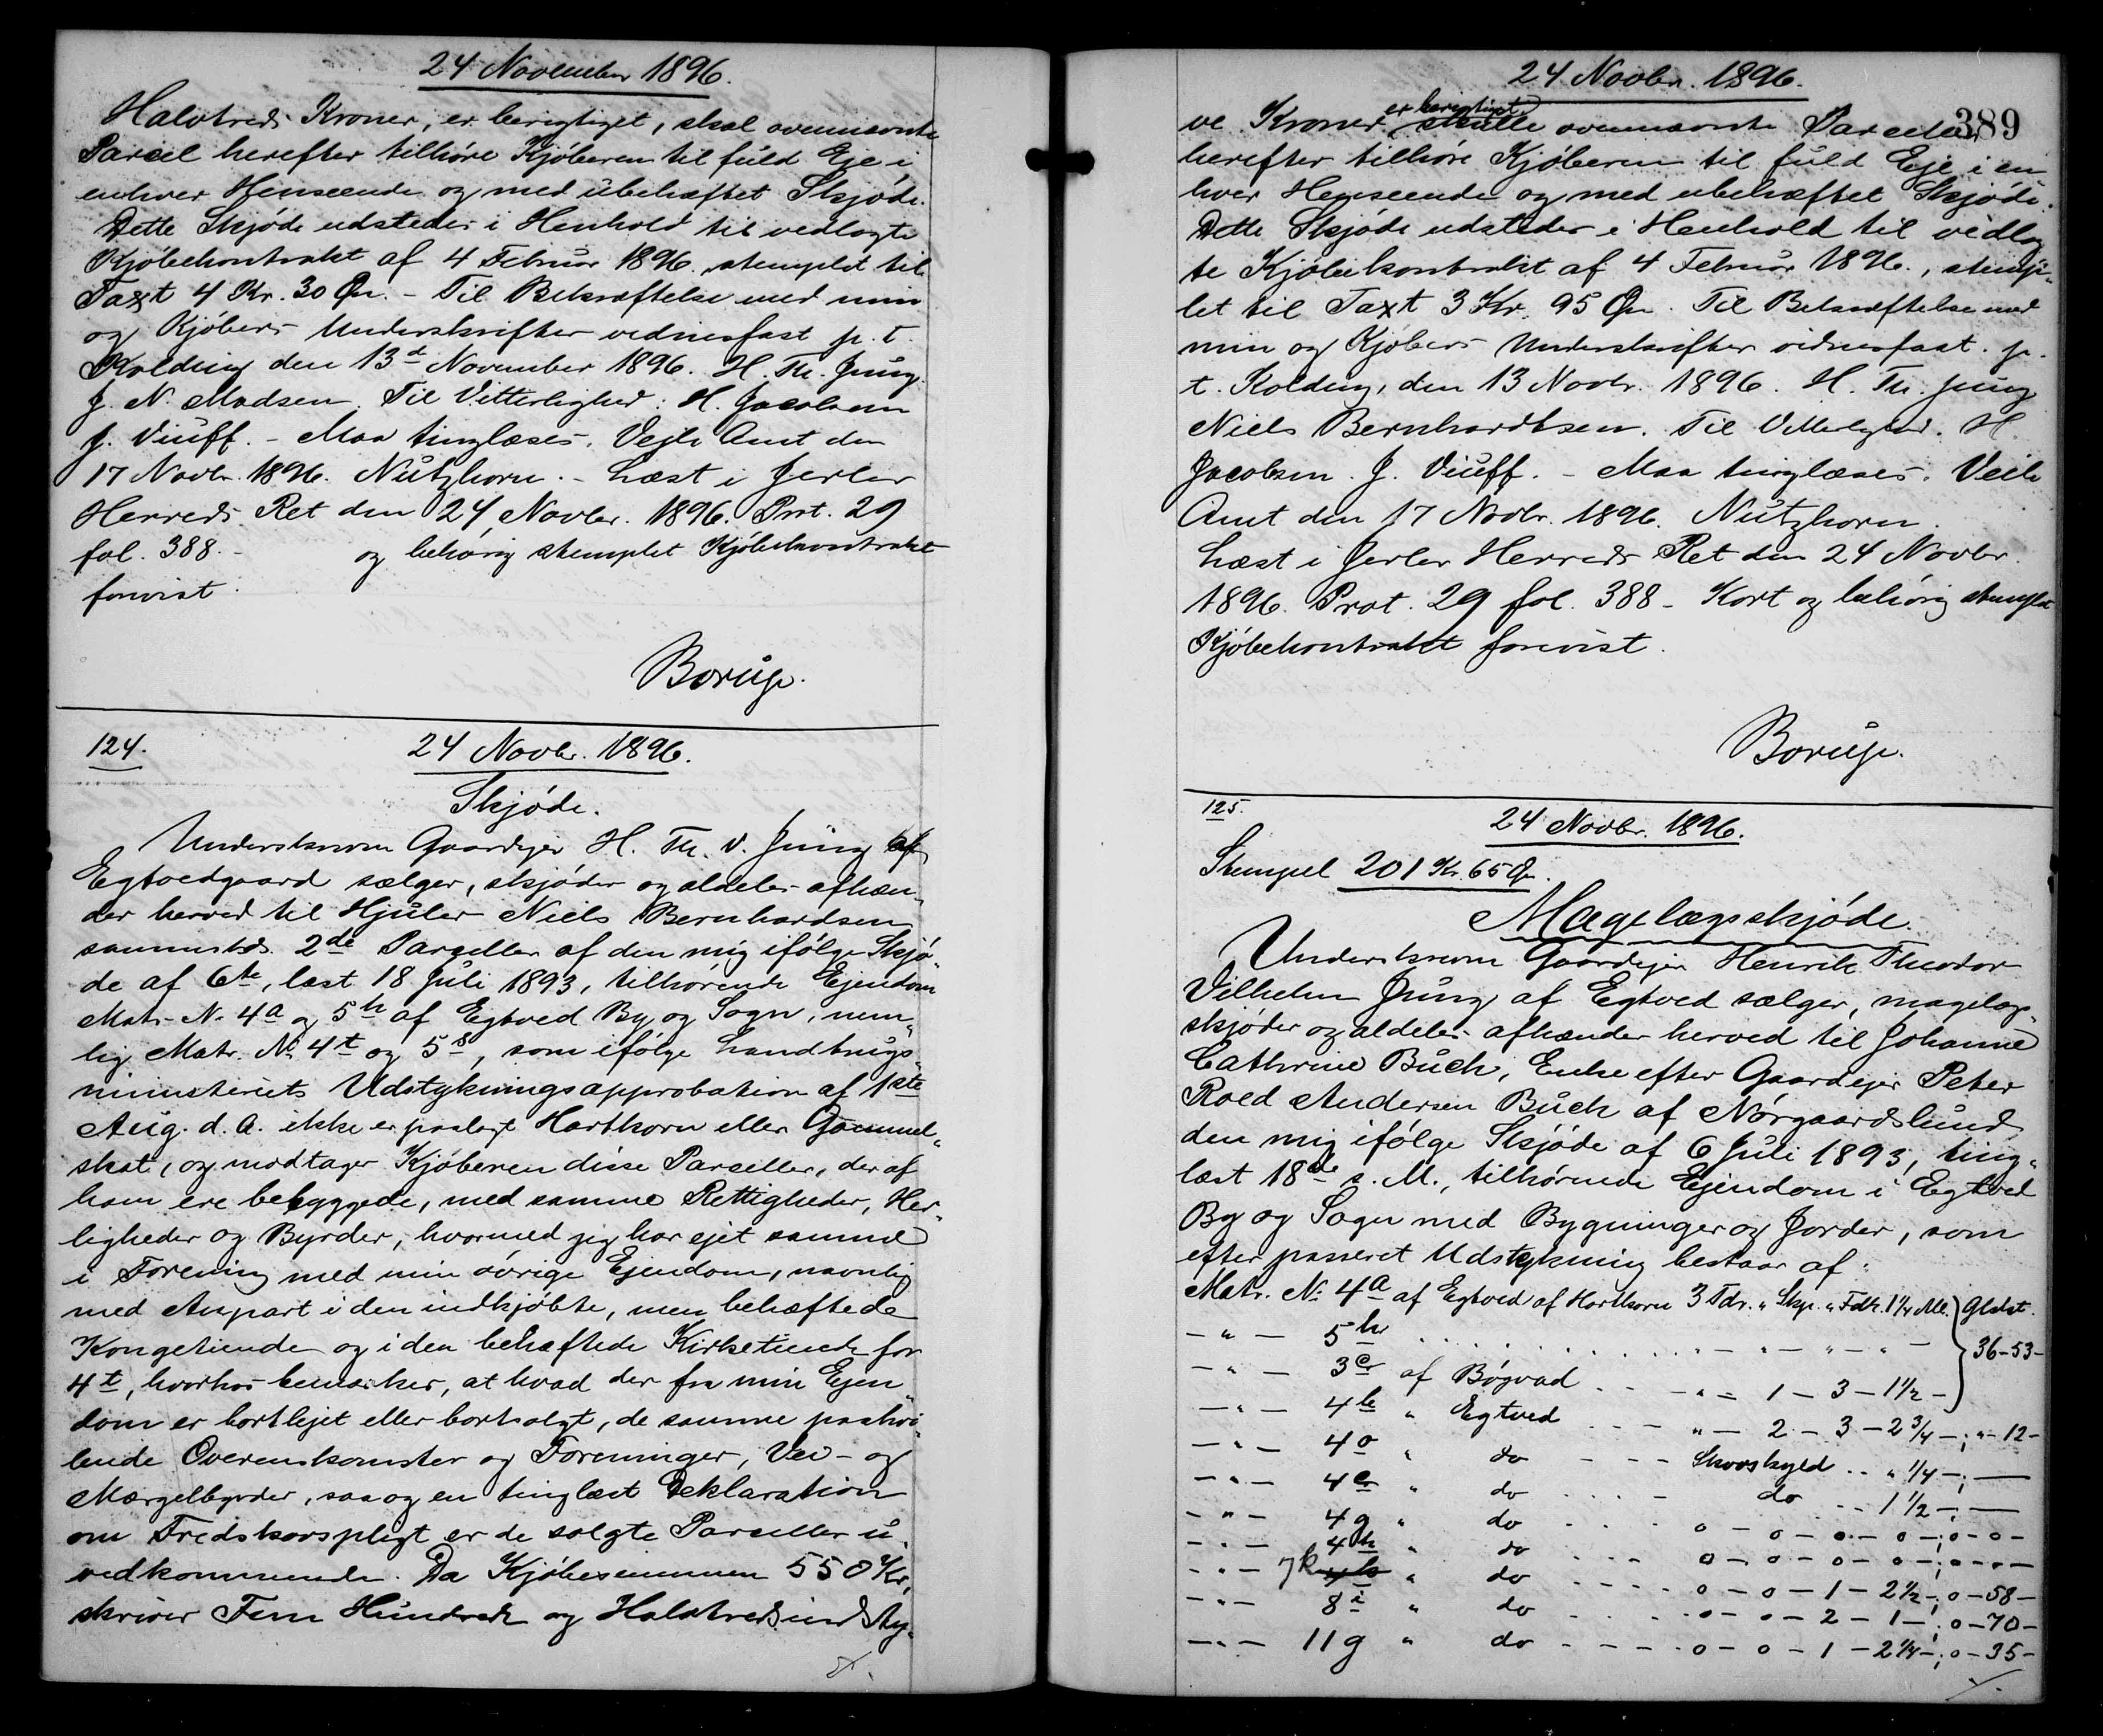 24 November 1896.
Halvtreds Kroner, er berigtiget, skal ovennævnte
Parcel herefter tilhøre Kjøberen til fuld Eje i
enhver Henseende og med ubehæftet Skjøde.
Dette Skjøde udstedes i Henhold til vedlagte
Kjøbekontrakt af 4 Februar 1896, stemplet til
Taxt 4 Kr. 30 Ør. - Til Bekræftelse med min
og Kjøbers Underskrifter vidnesfast p. t.
Kolding den 13d November 1896. H. Th. Jung.
J. N. Madsen. Til Vitterlighed: H. Jacobsen
J. Viuff. - Maa tinglæses. Vejle Amt den
17 Novbr. 1896. Nutzhorn. - Læst i Jerlev
Herreds Ret den 24 Novbr. 1896. Prot. 29
fol. 388. - og behørig stemplet Kjøbekontrakt
forevist.
Borup.
124. 24 Novbr. 1896.
Skjøde.
Underskrevne Gaardejer H. Th. V. Jung af
Egtvedgaard sælger, skjøder og aldeles afhæn„
der herved til Hjuler Niels Bernhardsen
sammesteds 2de Parzeller af den mig ifølge Skjø„
de af 6te, læst 18 Juli 1893, tilhørende Ejendom
Matr. No 4a og 5h af Egtved By og Sogn, nem„
lig Matr. No 4t og 5s, som ifølge Landbrugs„
ministeriets Udstykningsapprobation af 1ste
Aug. d. A. ikke er paalagt Hartkorn eller Gammel„
skat, og modtager Kjøberen disse Parceller, der af
ham ere bebyggede, med samme Rettigheder, Her„
ligheder og Byrder, hvormed jeg har ejet samme
i Forening med min øvrige Ejendom, navnlig
med Anpart i den indkjøbte, men behæftede
Kongetiende og i den behæftede Kirketiende for
4t, hvorhos bemærkes, at hvad der fra min Ejen„
dom er bortlejet eller bortsolgt, de samme paahvi„
lende Overenskomster og Foreninger, Vei- og
Mærgelbyrder, saa og en tinglæst Deklaration
om Fredskovspligt er de solgte Parceller u„
vedkommende. Da Kjøbesummen 550 Kr.,
skriver Fem Hundrede og Halvtredsindsty„
24 Novbr. 1896.
389
er berigtiget
ve Kroner, skulle ovennævnte Parceller
herefter tilhøre Kjøberen til fuld Eje i en
hver Henseende og med ubehæftet Skjøde.
Dette Skjøde udstedes i Henhold til vedlag
te Kjøbekontrakt af 4 Februar 1896., stemp„
let til Taxt 3 Kr. 95 Ør. Til Bekræftelse med
min og Kjøbers Underskrifter vidnesfast. p.
t. Kolding, den 13 Novbr. 1896. H. Th. Jung
Niels Bernhardtsen. Til Vitterlighed. H.
Jacobsen. J. Viuff. - Maa tinglæses. Veile
Amt den 17 Novbr. 1896. Nutzhorn.
Læst i Jerlev Herreds Ret den 24 Novbr.
1896. Prot. 29 fol. 388 - Kort og behørig stemplet
Kjøbekontrakt forevist.
Borup.
125. 24 Novbr. 1896.
Stempel 201 Kr. 65 Ør.
Magelægsskjøde.
Underskrevne Gaardejer Henrik Theodor
Vilhelm Jung af Egtved sælger, magelægs„
skjøder og aldeles afhænder herved til Johanne
Cathrine Buch, Enke efter Gaardejer Peter
Roed Andersen Buch af Nørgaardslund
den mig ifølge Skjøde af 6 Juli 1893, ting„
læst 18de s. M., tilhørende Ejendom i Egtved
By og Sogn med Bygninger og Jorder, som
efter passeret Udstykning bestaar af:
Matr. No 4a af Egtved af Hartkorn 3 Tdr. „ Skp. „ Fdk. 1 1/4 Alb. } Glskt.
- „ - 5h . . . . . . . . . - „ - „ - „ - 36-53-
- „ - 3e af Bøgvad . . - „ - 1 - 3 - 1 1/2 -
- „ - 4b „ Egtved . . - „ - 2 - 3 - 2 3/4 -; „ - 12 -
- „ - 4o „ do - - - Skovskyld . . „ 1/4 -; -
- „ - 4e „ do . . . . - do . . - 1 1/2 -; -
- „ - 4g „ do . . . . o - o - o - o -; o - o -
- „ - 4h „ do . . . - o - o - o - o -; o - o -
- „ - 7k „ do . . . - o - o - 1 - 2 1/2 -; o - 58 -
- „ - 8i „ do . . . . - o - o - 2 - 1 -; o - 70 -
- „ - 11g „ do - - - - o - o - 1 - 2 1/4 -; o - 35 -